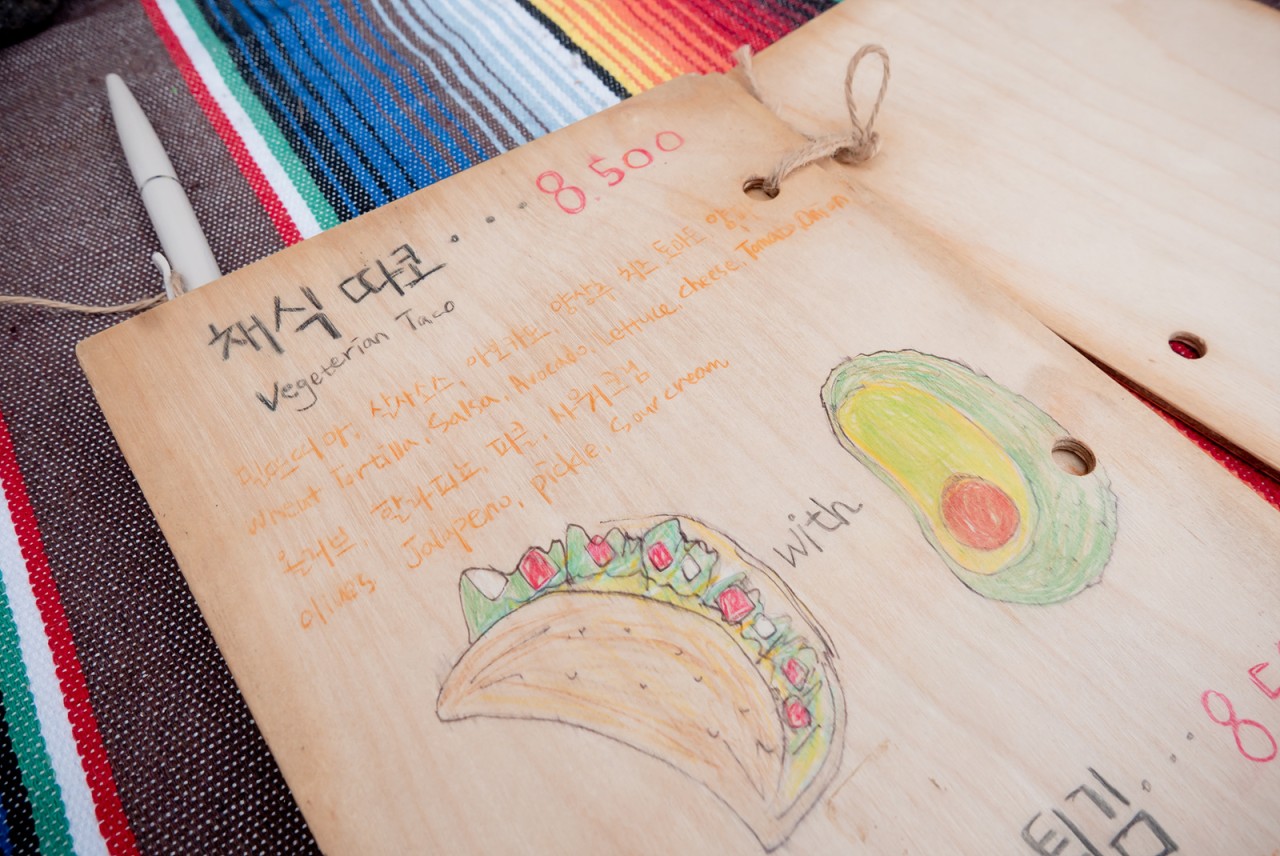 채식 따코 . . . . 8.500
Vegeterian Taco
밀또띠아, 살사소스, 아보카도, 양상추 치즈 토마토 양파,
wheat Tortilla, Salsa, Avocado, Lettuce, cheese, Tomato, Onion
올리브, 할라피뇨, 피클, 사워크림
olives Jalapeno, pickle, Sour cream
with
튀김 . . . 8.5